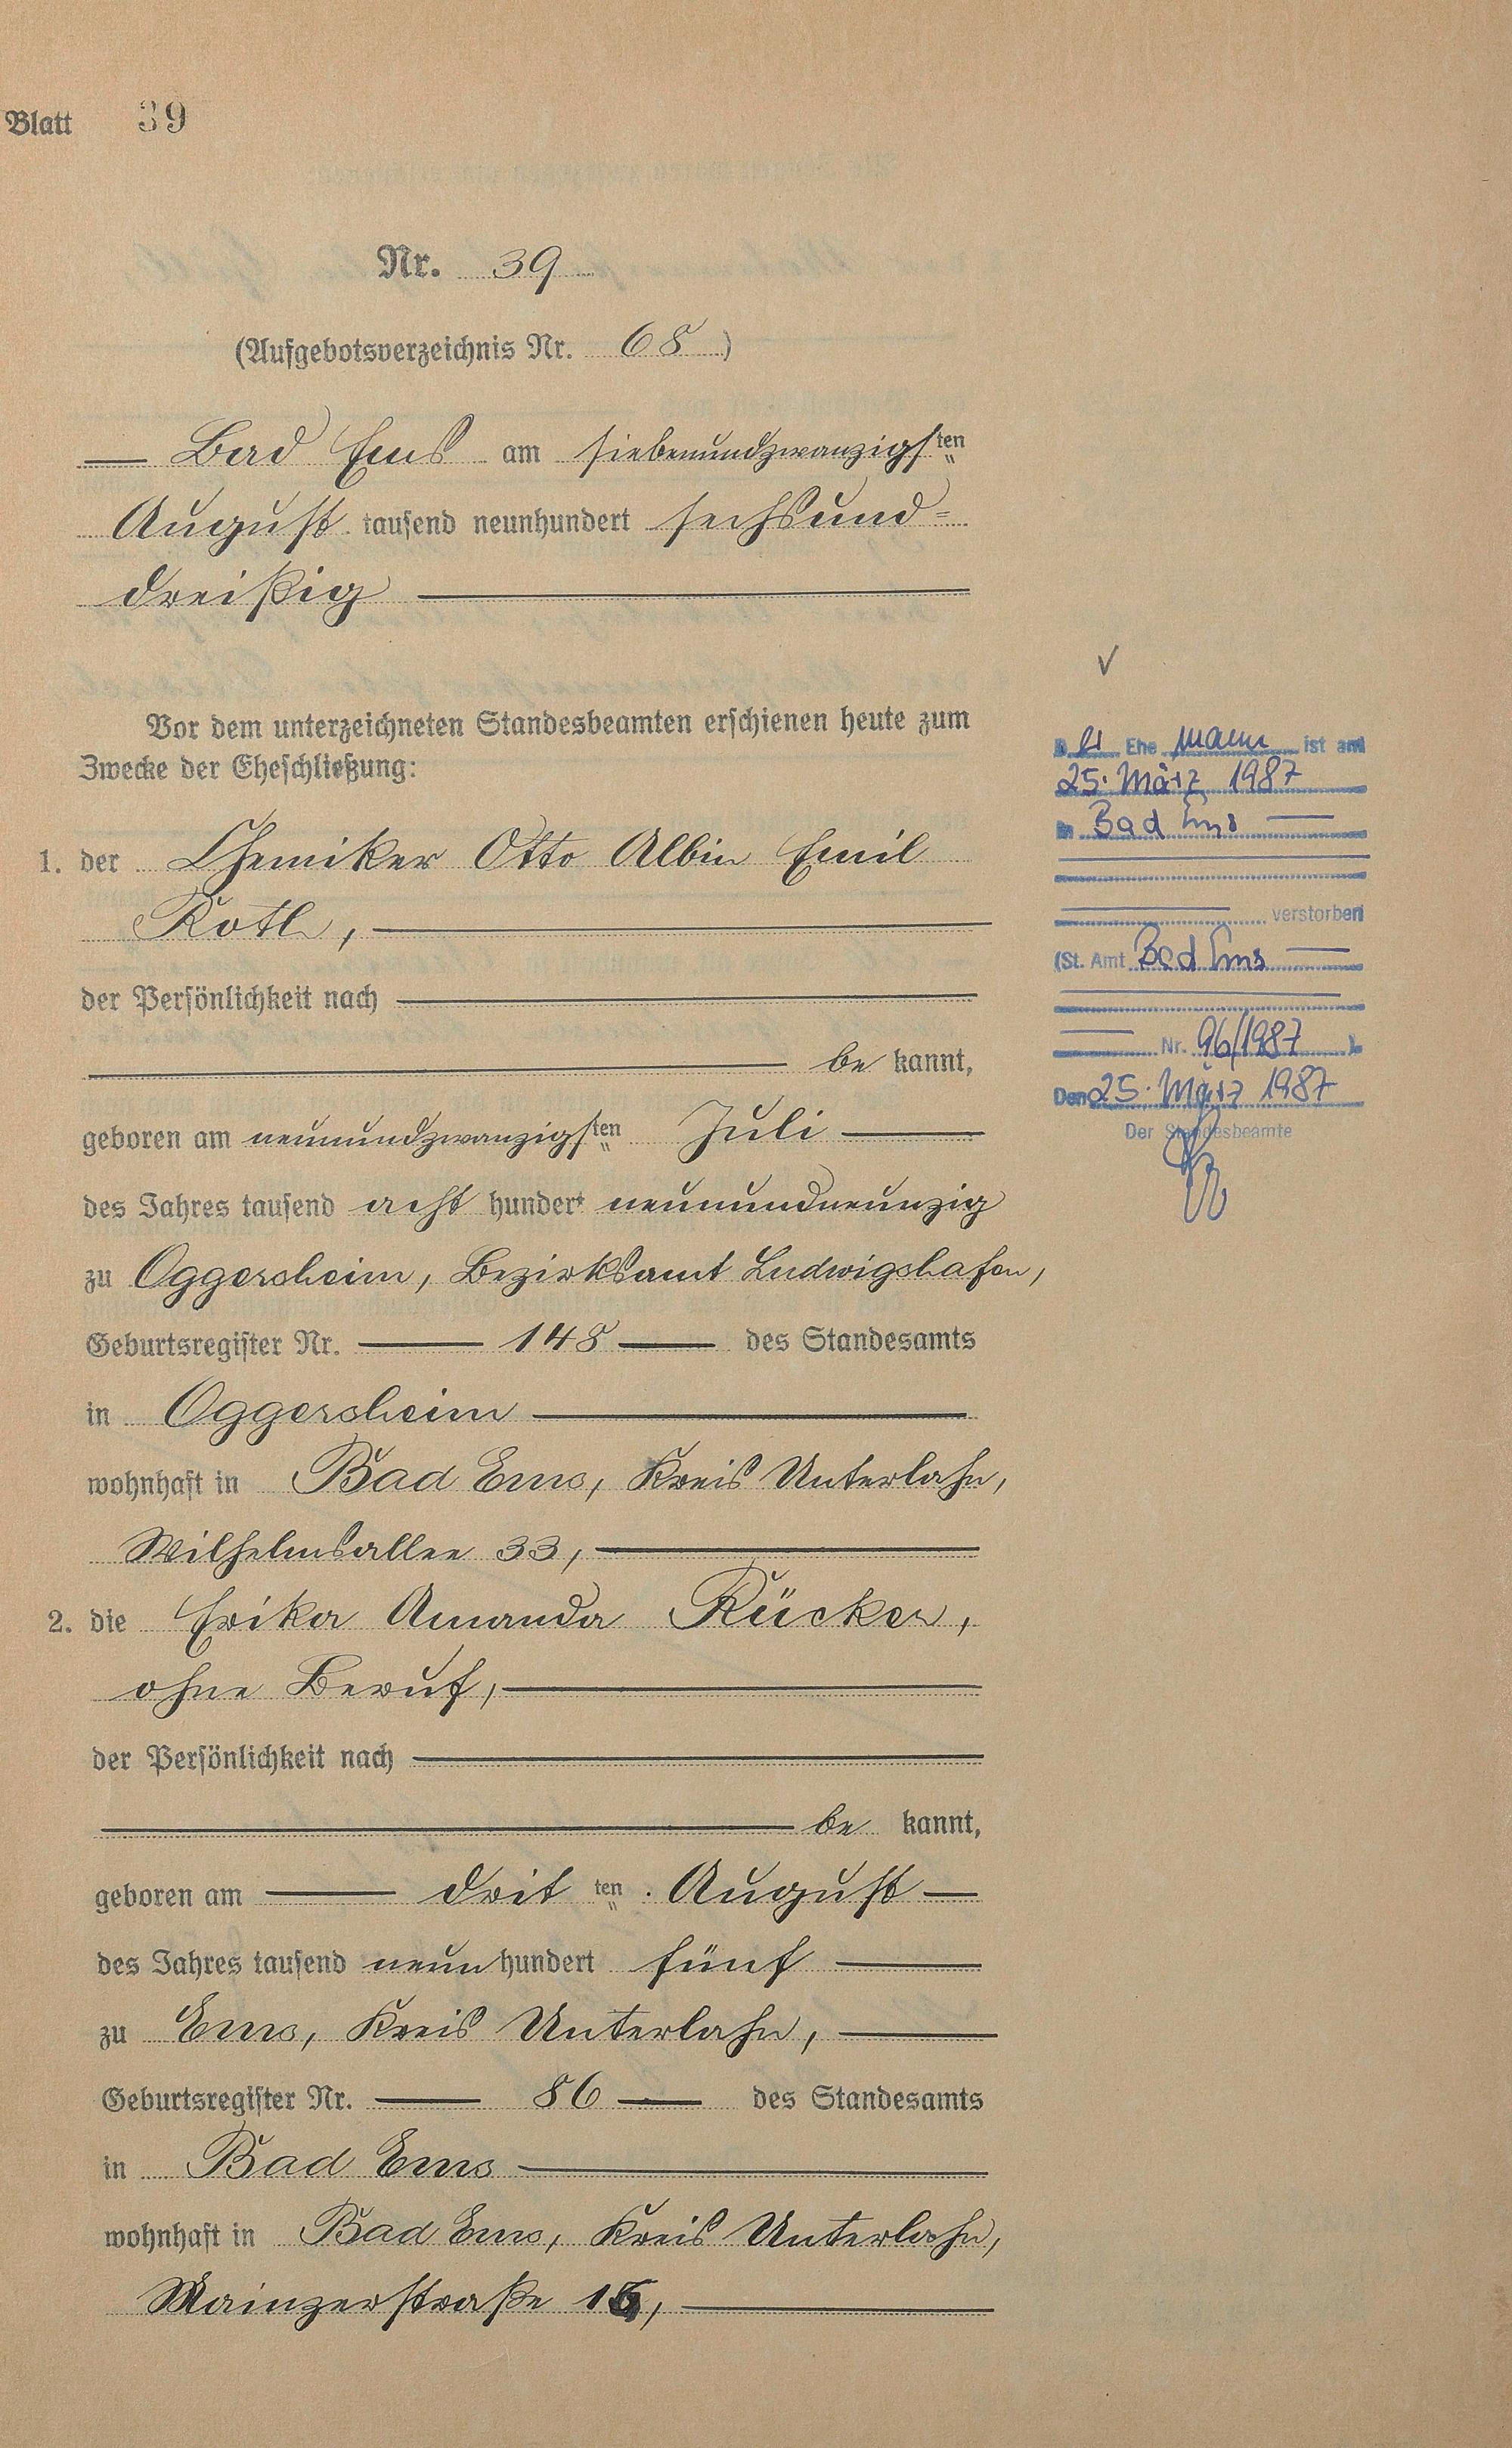 Blatt 39
Nr. 39
(Aufgebotsverzeichnis Nr. 68)
Bad Ems am siebenundzwanzigsten
August tausend neunhundert sechsund=
dreißig
Vor dem unterzeichneten Standesbeamten erschienen heute zum
Zwecke der Eheschließung:
1. der Chemiker Otto Albin Emil
Roth,
der Persönlichkeit nach
be kannt,
geboren am neunundzwanzigsten Juli
des Jahres tausend acht hundert neunundneunzig
zu Oggersheim, Bezirksamt Ludwigshafen,
Geburtsregister Nr. 148 des Standesamts
in Oggersheim
wohnhaft in Bad Ems, Kreis Unterlahn,
Wilhelmsallee 33,
2. die Erika Amanda Rücker,
ohne Beruf,
der Persönlichkeit nach
be kannt,
geboren am dritten August
des Jahres tausend neun hundert fünf
zu Ems, Kreis Unterlahn,
Geburtsregister Nr. 86 des Standesamts
in Bad Ems
wohnhaft in Bad Ems, Kreis Unterlahn,
Mainzerstraße
Der Ehemann ist am
25. März 1987
in Bad Ems
verstorben
(St. Amt Bad Ems
Nr. 96/1987 ).
Den 25. März 1987
Der Standesbeamte